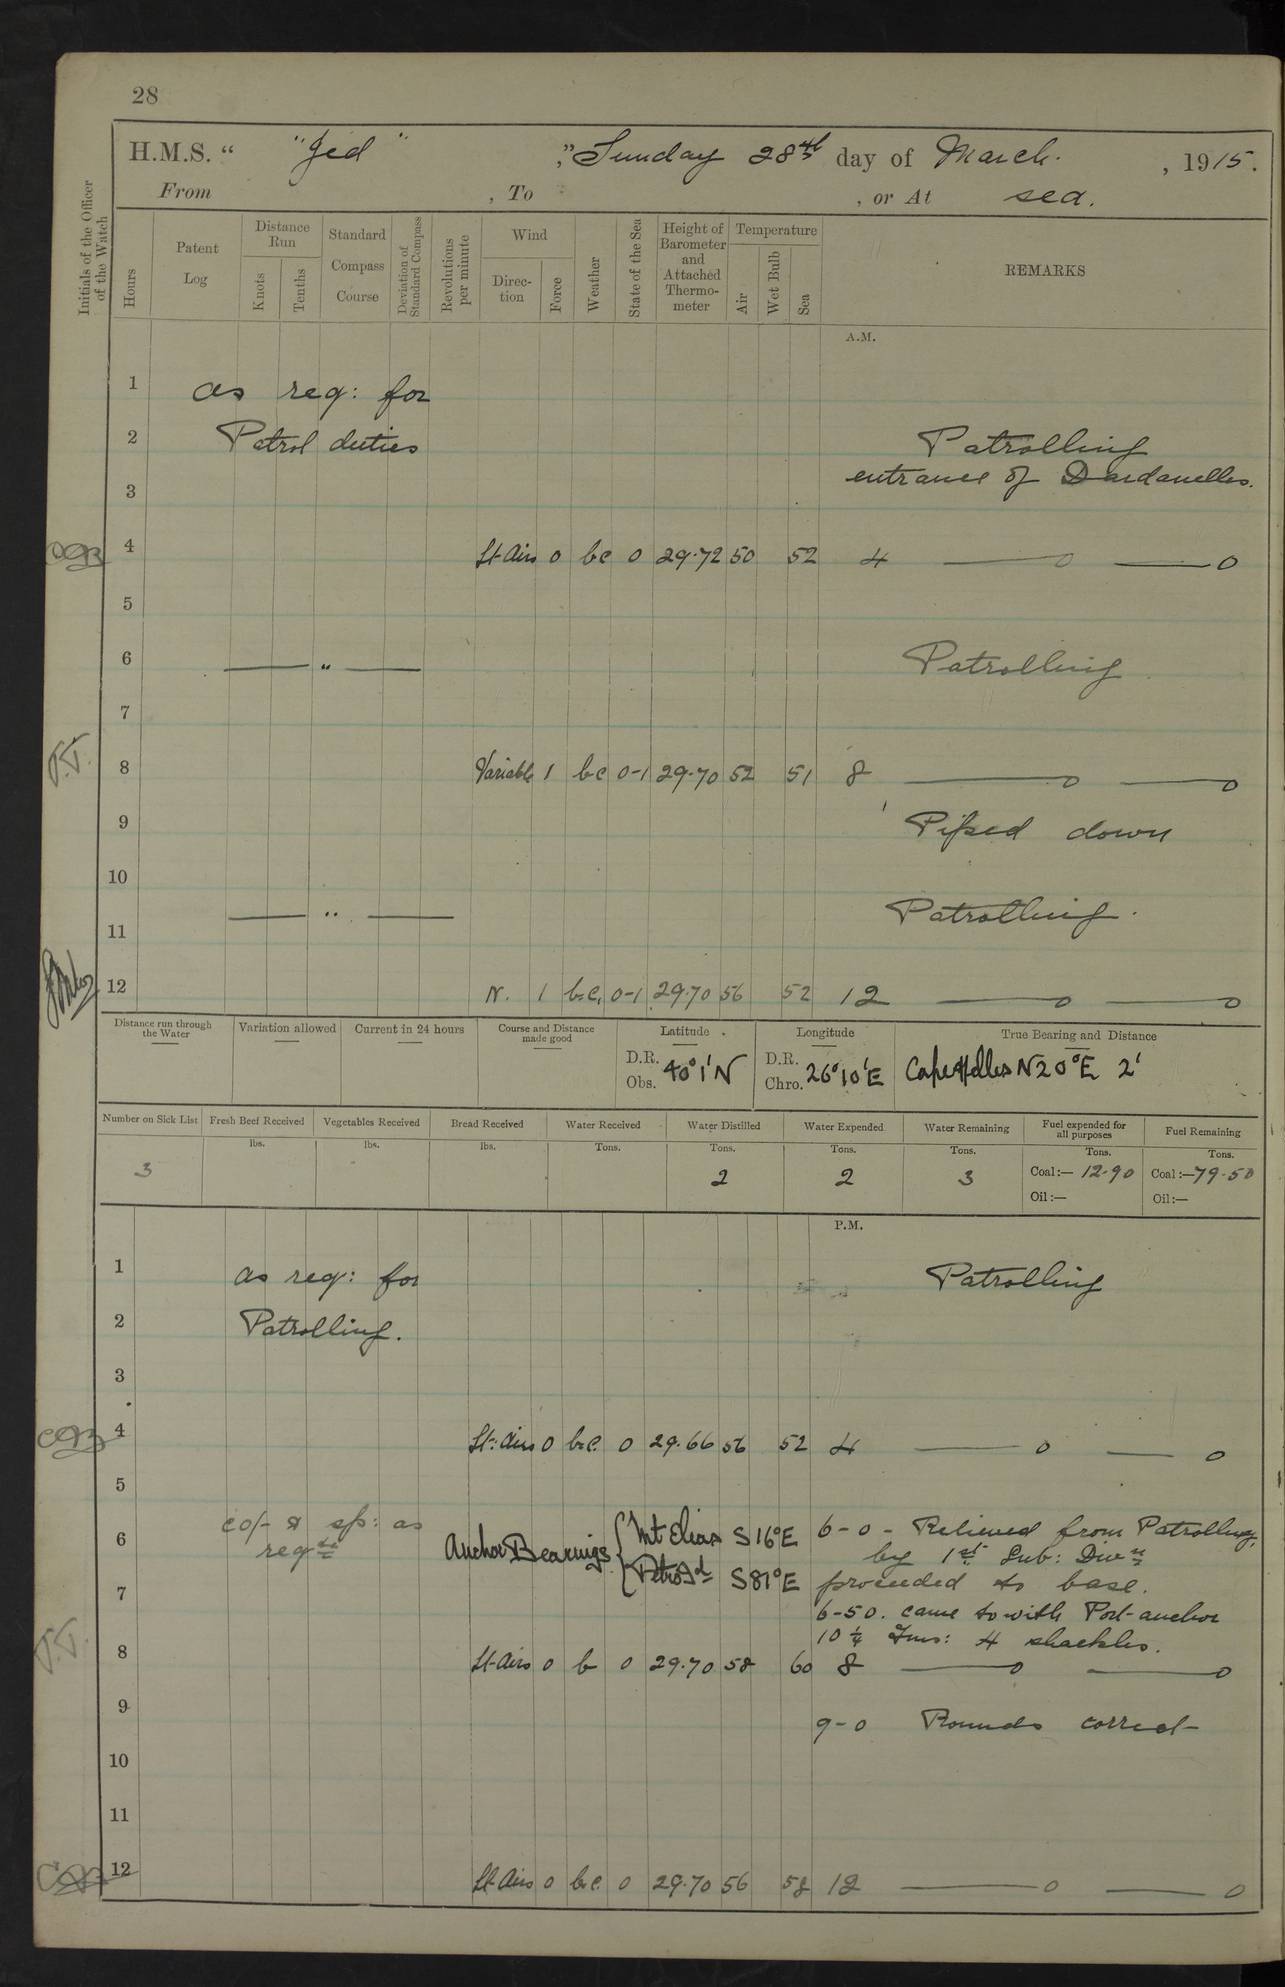 28
H.M.S. " "Jed" ," Sunday 28th day of March. , 1915.
From , To , or At sea.
Initials of the Officer of the Watch
Hours
Patent Log
Distance Run
Knots
Tenths
Standard Compass Course
Deviation of Standard Compass
Revolutions per minute
Wind
Direction
Force
Weather
State of the Sea
Height of Barometer and Attached Thermometer
Temperature
Air
Wet Bulb
Sea
REMARKS
A.M.
1 as req: for
2 Patrol duties Patrolling
entrance of Dardanelles.
3
4 Lt Airs 0 bc 0 29.72 50 52 4 —— 0 —— 0
5
6 —— " —— Patrolling
7
J.T. 8 Variable 1 bc 0-1 29.70 52 51 8 —— 0 —— 0
9 Pissed down
10
—— " —— Patrolling.
11
12 N. 1 b.c. 0-1 29.70 56 52 12 —— 0 —— 0
Distance run through the Water
Variation allowed
Current in 24 hours
Course and Distance made good
Latitude
D.R.
Obs. 40° 1' N
Longitude
D.R.
Chro. 26° 10' E
True Bearing and Distance
Cape Helles N20°E 2'
Number on Sick List
3
Fresh Beef Received
lbs.
Vegetables Received
lbs.
Bread Received
lbs.
Water Received
Tons.
Water Distilled
Tons.
2
Water Expended
Tons.
2
Water Remaining
Tons.
3
Fuel expended for all purposes
Tons.
Coal:— 12.90
Oil:—
Fuel Remaining
Tons.
Coal:— 79.50
Oil:—
P.M.
1 as req: for Patrolling
2 Patrolling.
3
4 Lt: Airs 0 b.c. 0 29.66 56 52 4 —— 0 —— 0
5
co/- & sp: as
6 req:d Anchor Bearings { Mt Elias S 16°E 6-0 - Relieved from Patrolling,
by 1st Sub: Divn
S 81°E proceeded to base.
7
6-50. came to with Port anchor
10 1/4 Fms: 4 shackles.
J.T. 8 Lt Airs 0 b 0 29.70 58 60 8 —— 0 —— 0
9 9-0 Rounds correct
10
11
12 Lt Airs 0 b.c. 0 29.70 56 58 12 —— 0 —— 0